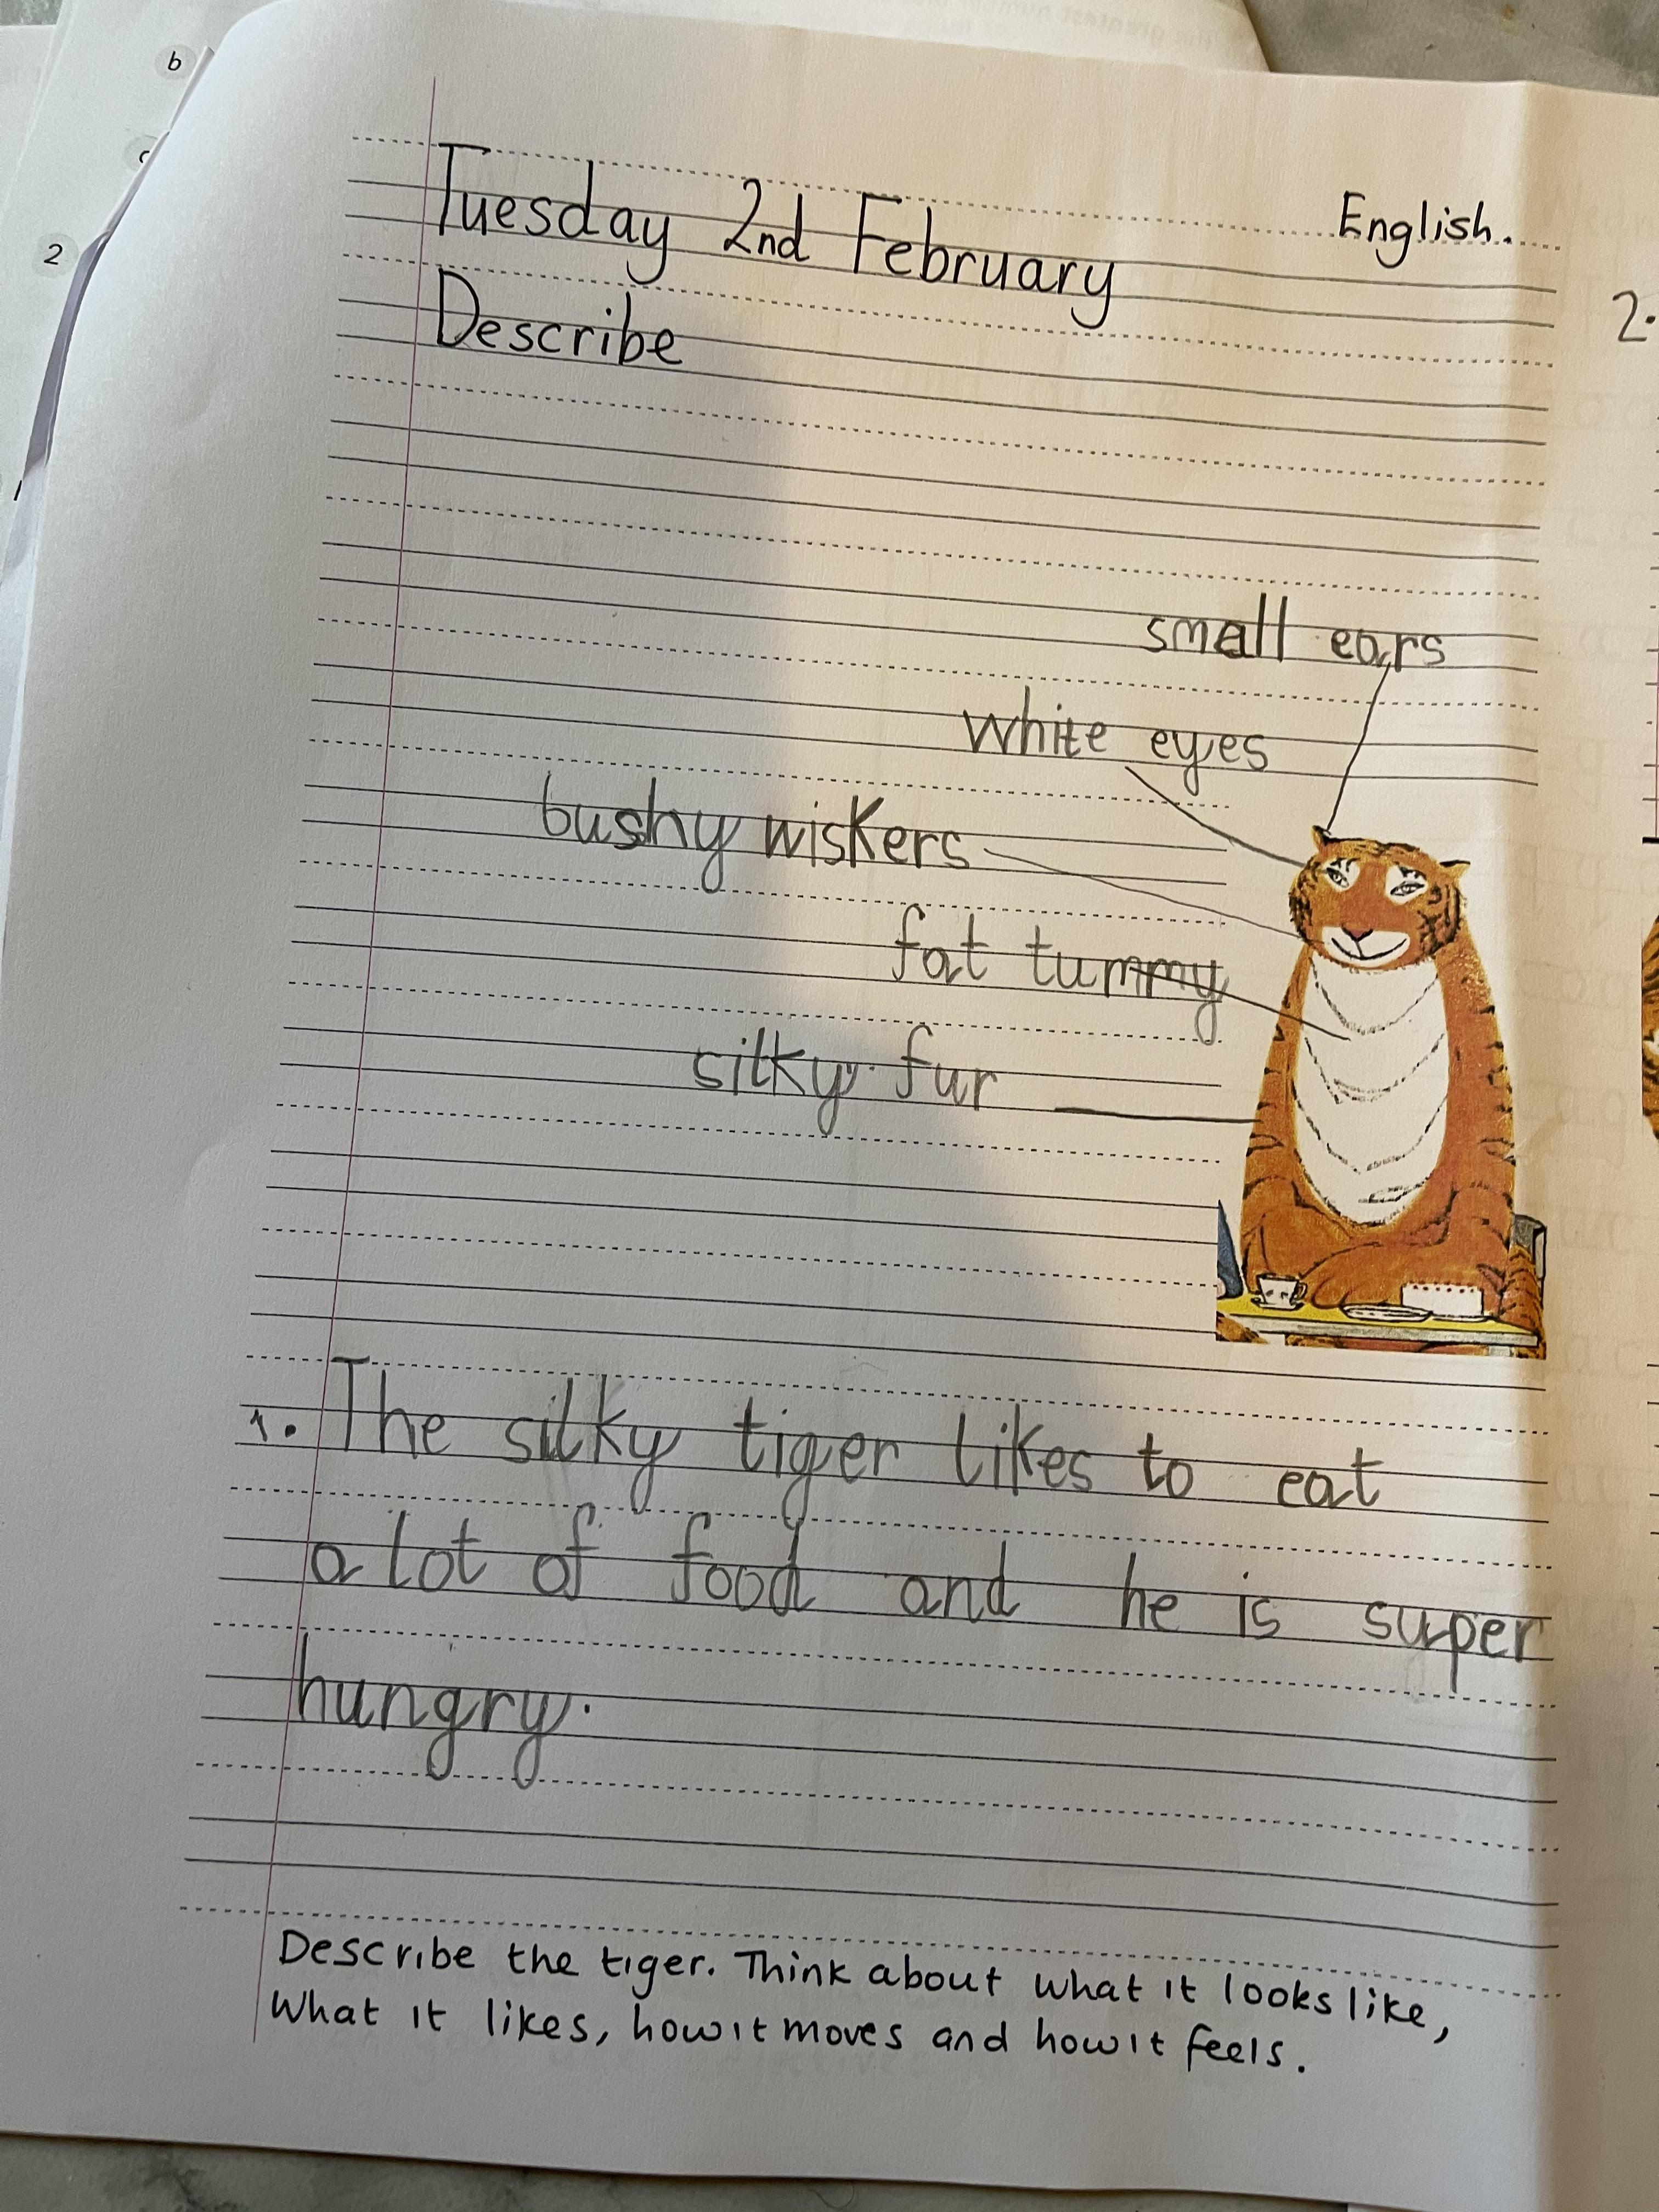 b
2
Tuesday 2nd February
English.
Describe
2.
small ears
white eyes
bushy wiskers
fat tummy
silky fur
1. The silky tiger likes to eat
a lot of food and he is super
hungry.
Describe the tiger. Think about what it looks like,
What it likes, how it moves and how it feels.